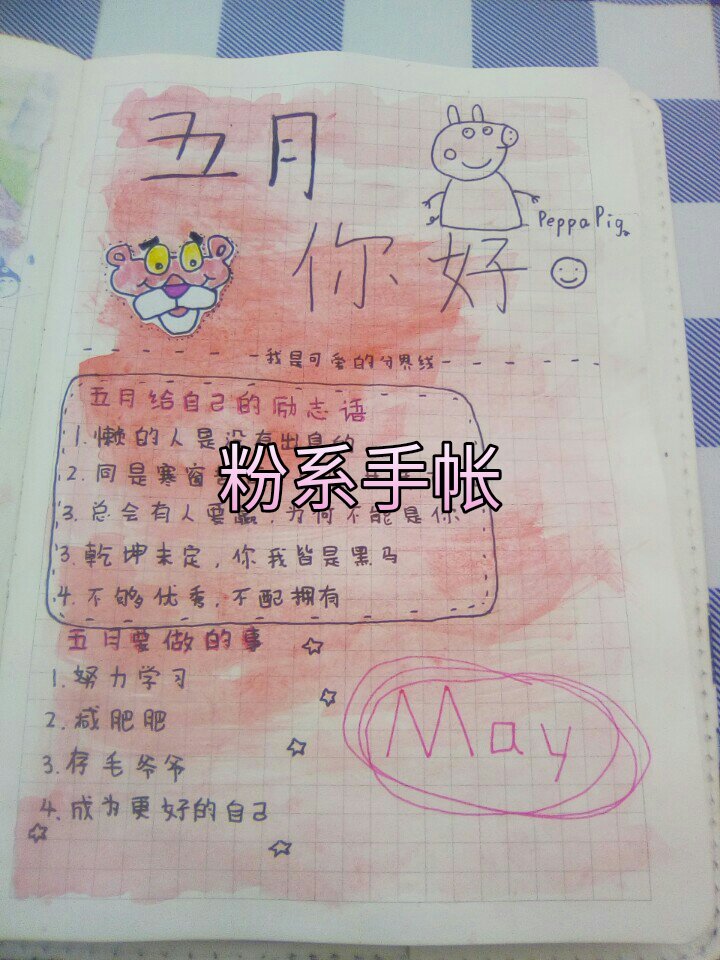 五月
Peppa Pig
你好
我是可爱的分界线
五月给自己的励志语
1.懒的人是没有出息的
2.同是寒窗
粉系手帐
3.总会有人要赢,为何不能是你
3.乾坤未定,你我皆是黑马
4.不够优秀,不配拥有
五月要做的事
1.努力学习
2.减肥肥
3.存毛爷爷
4.成为更好的自己
May